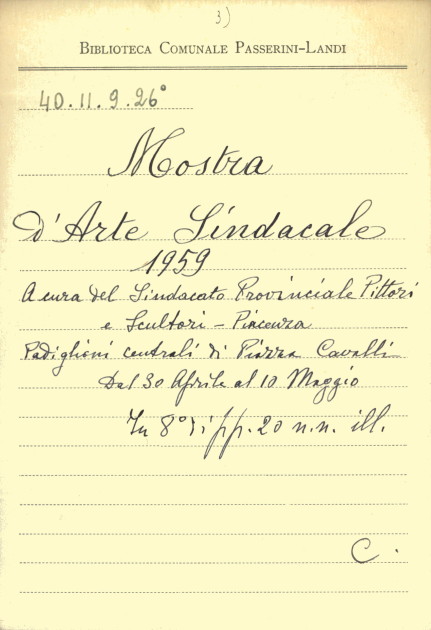 3)
BIBLIOTECA COMUNALE PASSERINI-LANDI
40.11.9.26°
Mostra
d'Arte Sindacale
1959
A cura del Sindacato Provinciale Pittori
e Scultori - Piacenza
Padiglioni centrali di Piazza Cavalli
Dal 30 Aprile al 10 Maggio
In 8° di pp. 20 n.n. ill.
C.